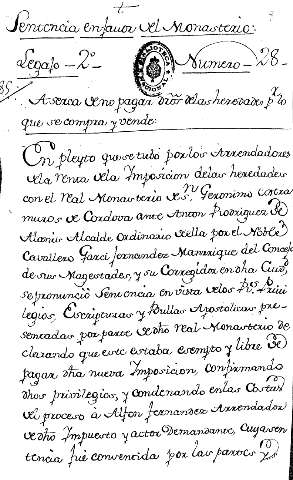 Sentencia en favor del Monasterio:
Legajo - 2º Numero - 28 -
Aserca de no pagar dros de las heredades pr lo
que se compra, y vende:
En pleyto que se tubo por los Arrendadores
de la Renta de la Imposicion de las heredades
con el Real Monasterio de Sn Geronimo extra
muros de Cordova ante Anton Rodriguez de
Alanis Alcalde Ordinario de ella por el Noble
Cavallero Garci fernandez Manrrique del Consejo
de sus Magestades, y su Corregidor en dha Ciud
se pronunció Sentencia en vista de los Rs Privi
legios, Escripturas y Bullas Apostolicas pre
sentadas por parte de dho Real Monasterio de
clarando que este estaba esempto y libre de
pagar dha nueva Imposicion, confirmando
dhos privilegios, y condenando en las Costas
del proceso à Alfon fernandez Arrendador
de dho Impuesto y actor Demandante, cuya sen
tencia fué consentida por las partes y